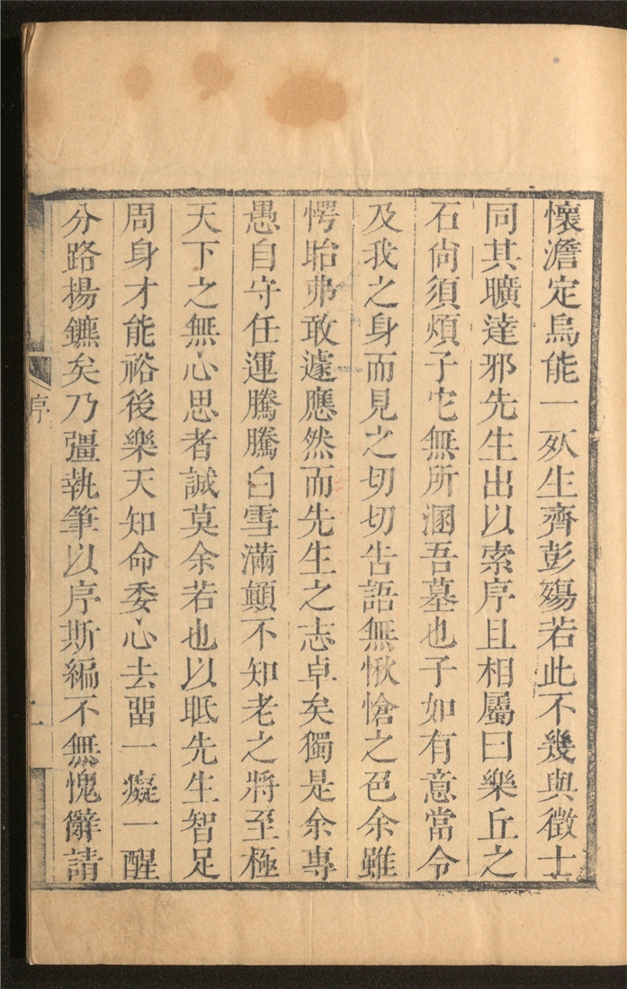 懷澹定烏能一死生齊彭殤若此不幾與徵士
同其曠達邪先生出以索序且相屬曰樂丘之
石尙須煩子它無所溷吾墓也子如有意當令
及我之身而見之切切告語無愀愴之色余雖
愕眙弗敢遽應然而先生之志卓矣獨是余專
愚自守任運騰騰白雪滿顚不知老之將至極
天下之無心思者誠莫余若也以眡先生智足
周身才能裕後樂天知命委心去畱一癡一醒
分路揚鑣矣乃彊執筆以序斯編不無愧辭請
序
二